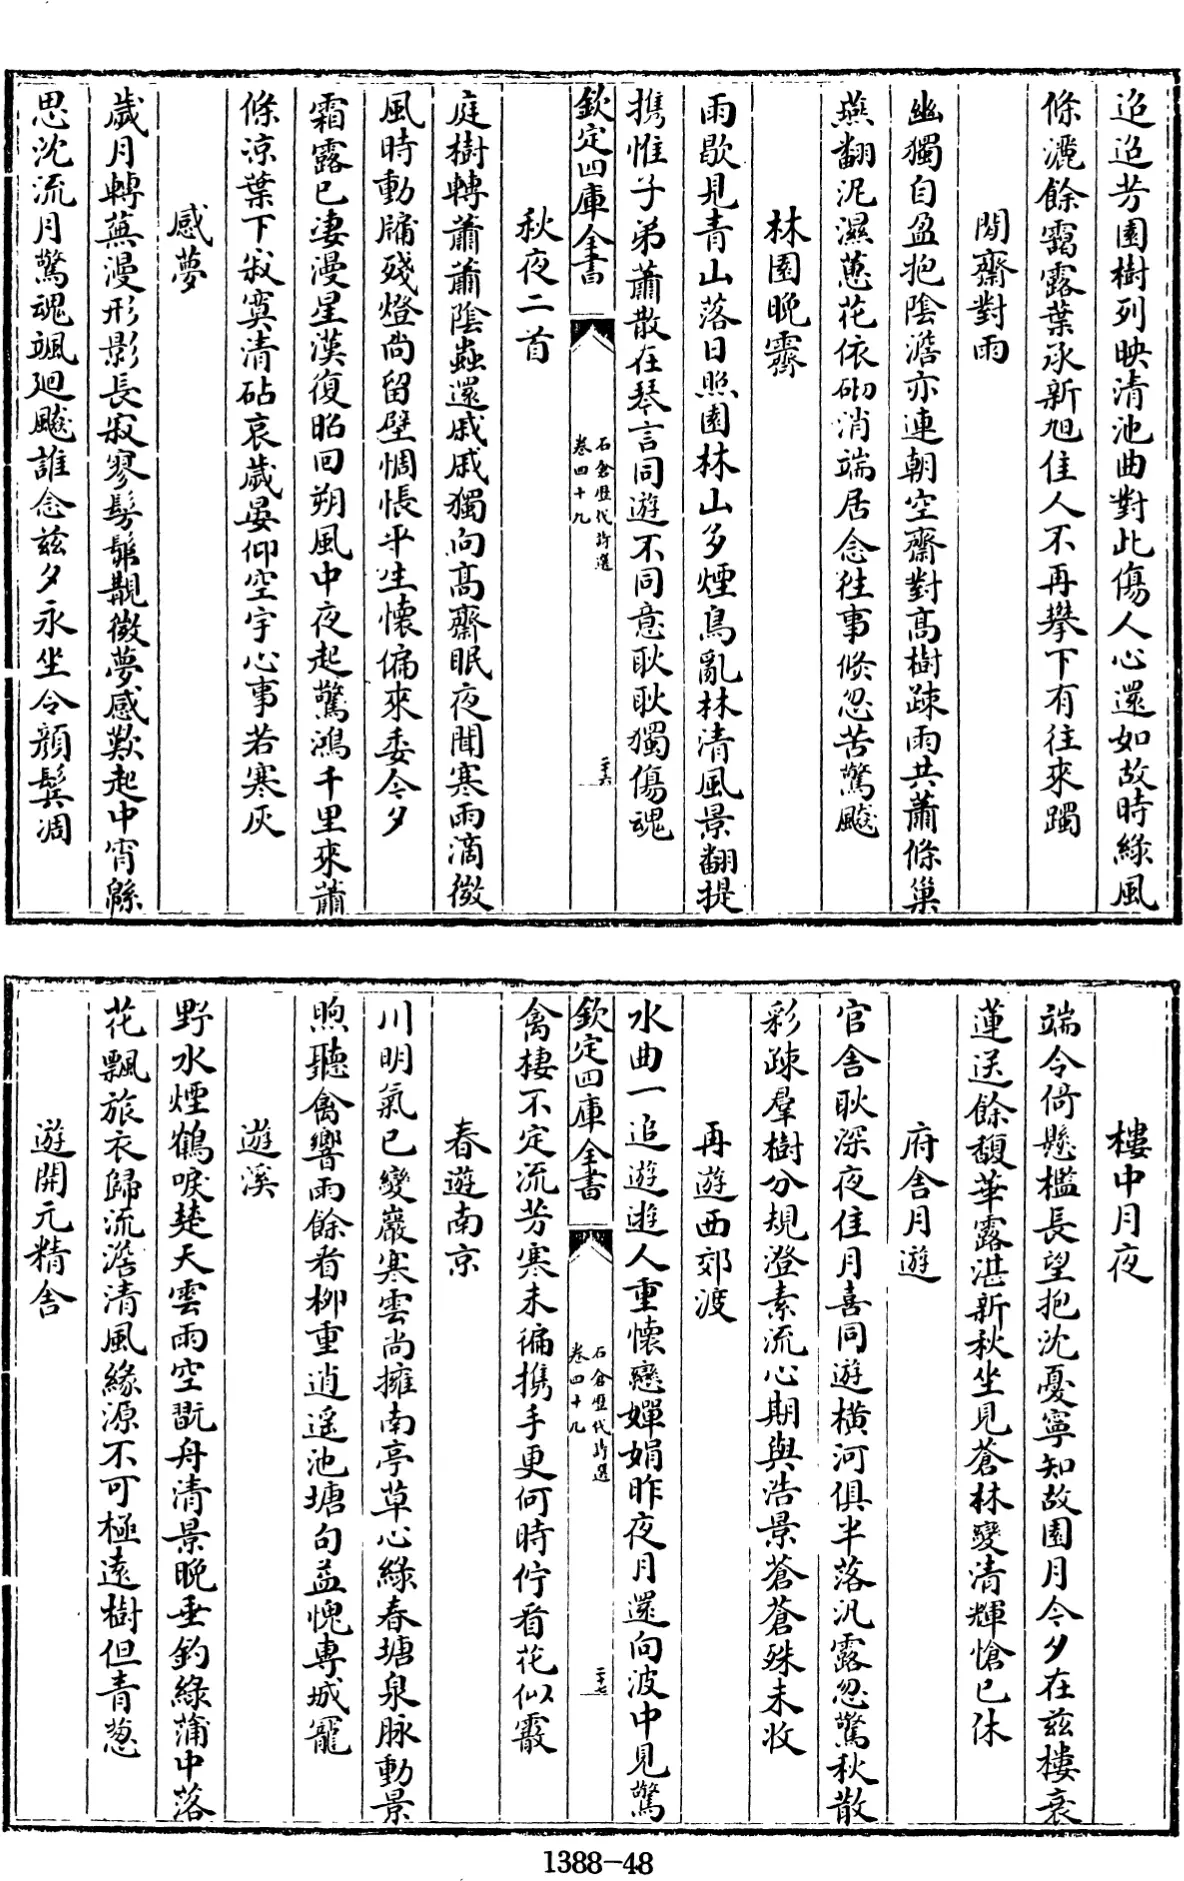 迢迢芳園樹列映清池曲對此傷人心還如故時綠風
條灑餘靄露葉承新旭佳人不再攀下有往來躅
閒齋對雨
幽獨自盈抱陰澹亦連朝空齋對高樹疎雨共蕭條巢
燕翻泥濕蕙花依砌消端居念往事倐忽苦驚飈
林園晚霽
雨歇見青山落日照園林山多煙鳥亂林清風景翻提
攜惟子弟蕭散在琴言同遊不同意耿耿獨傷魂
欽定四庫全書
石倉歷代詩選
卷四十九
二十六
秋夜二首
庭樹轉蕭蕭陰蟲還戚戚獨向髙齋眠夜聞寒雨滴微
風時動牖殘燈尚留壁惆悵平生懷偏來委今夕
霜露已凄漫星漢復昭回朔風中夜起驚鴻千里來蕭
條涼葉下寂寞清砧哀歲晏仰空宇心事若寒灰
感夢
歲月轉蕪漫形影長寂寥髣髴覯微夢感歎起中宵緜
思沈流月驚魂颯迴飈誰念茲夕永坐令顔鬢凋
樓中月夜
端令倚懸檻長望抱沈憂寧知故園月今夕在茲樓衰
蓮送餘馥華露湛新秋坐見蒼林變清輝愴已休
府舍月遊
官舍耿深夜佳月喜同遊橫河俱半落汎露忽驚秋散
彩疎羣樹分規澄素流心期與浩景蒼蒼殊未收
再遊西郊渡
水曲一追遊遊人重懷戀嬋娟昨夜月還向波中見驚
禽棲不定流芳寒未徧攜手更何時佇看花似霰
欽定四庫全書
石倉歷代詩選
卷四十九
二十七
春遊南京
川明氣已變巖寒雲尚擁南亭草心綠春塘泉脉動景
煦聽禽響雨餘看柳重逍遥池塘句益愧專城寵
遊溪
野水煙鶴唳楚天雲雨空翫舟清景晚垂釣綠蒲中落
花飄旅衣歸流澹清風緣源不可極遠樹但青葱
遊開元精舍
1388-48